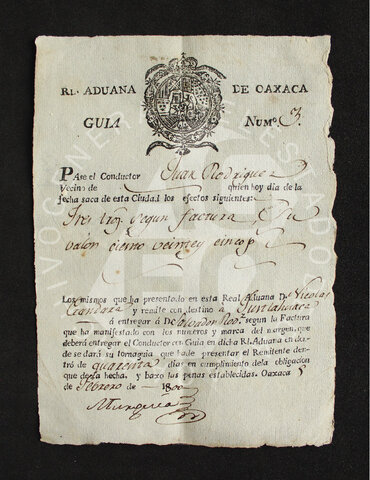 Rl. ADUANA DE OAXACA
GUIA Numo. 3.
Pase el Conductor Juan Rodriguez
Vecino de quien hoy dia de la
fecha saca de esta Ciudad los efectos siguientes:
Tres troz. segun factura Su
valor ciento veinte y cinco p
Los mismos que ha presentado en esta Real Aduana Dn. Nicolas
Grandara y remite con destino a Justlahuaca
á entregar á Dn. Salvador Rodz. segun la Factura
que ha manifestado con los numeros y marca del margen, que
deberá entregar el Conductor con Guia en dicha Rl. Aduana en don-
de se dará su tornaguia que ha de presentar el Remitente den-
tro de quarenta dias en cumplimiento de la obligacion
que de esta fecha, y baxo las penas establecidas. Oaxaca 5
de Febrero de 1800
Murguía